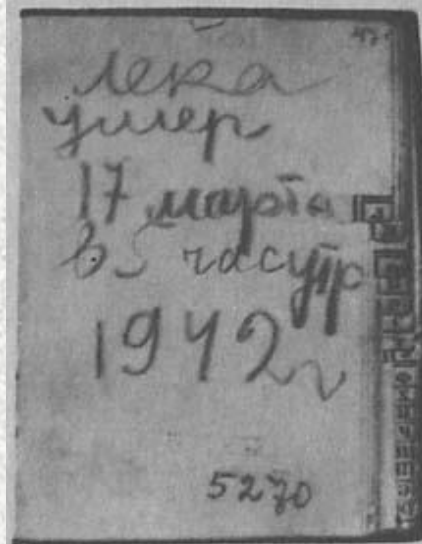 Лека
умер
17 марта
в 5 часутр
1942г
5270